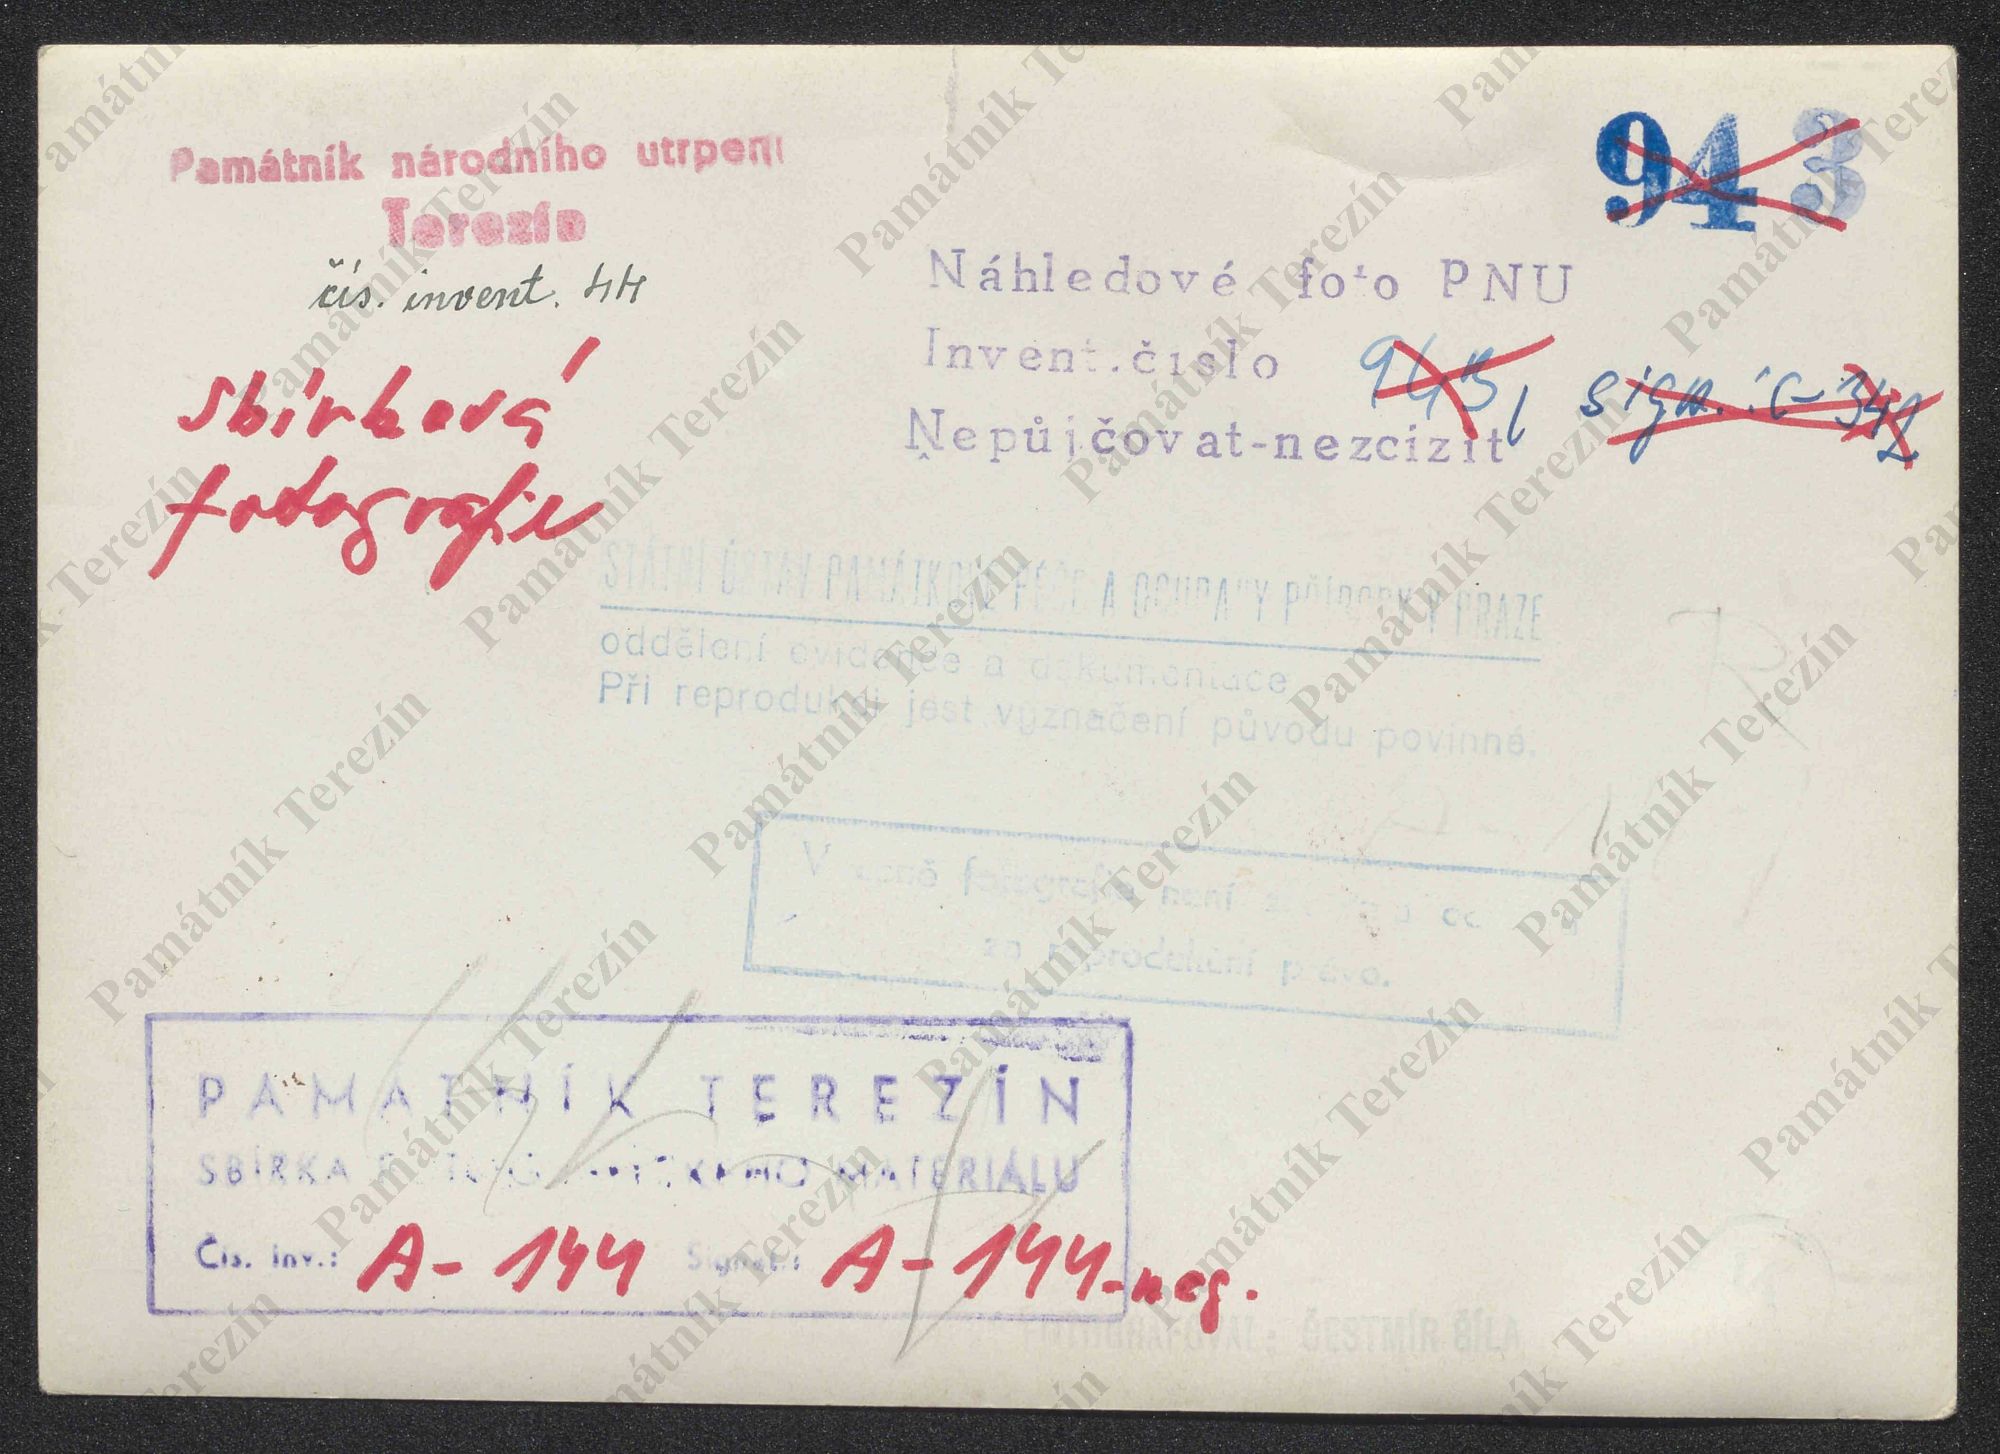 943
Památník národního utrpení
Terezín
čís. invent. 44
sbírková
fotografie
Náhledové foto PNU
Invent. číslo 943
sign. : C-342
Nepůjčovat-nezcizit
STÁTNÍ ÚSTAV PAMÁTKOVÉ PÉČE A OCHRANY PŘÍRODY V PRAZE
oddělení evidence a dokumentace
Při reprodukci jest vyznačení původu povinné.
V ceně fotografie není
za reprodukční právo.
PAMÁTNÍK TEREZÍN
SBÍRKA MATERIÁLU
Čís. inv.: A-144 Signat.: A-144-neg.
FOTOGRAFOVAL: ČESTMÍR ŠÍLA
Památník Terezín